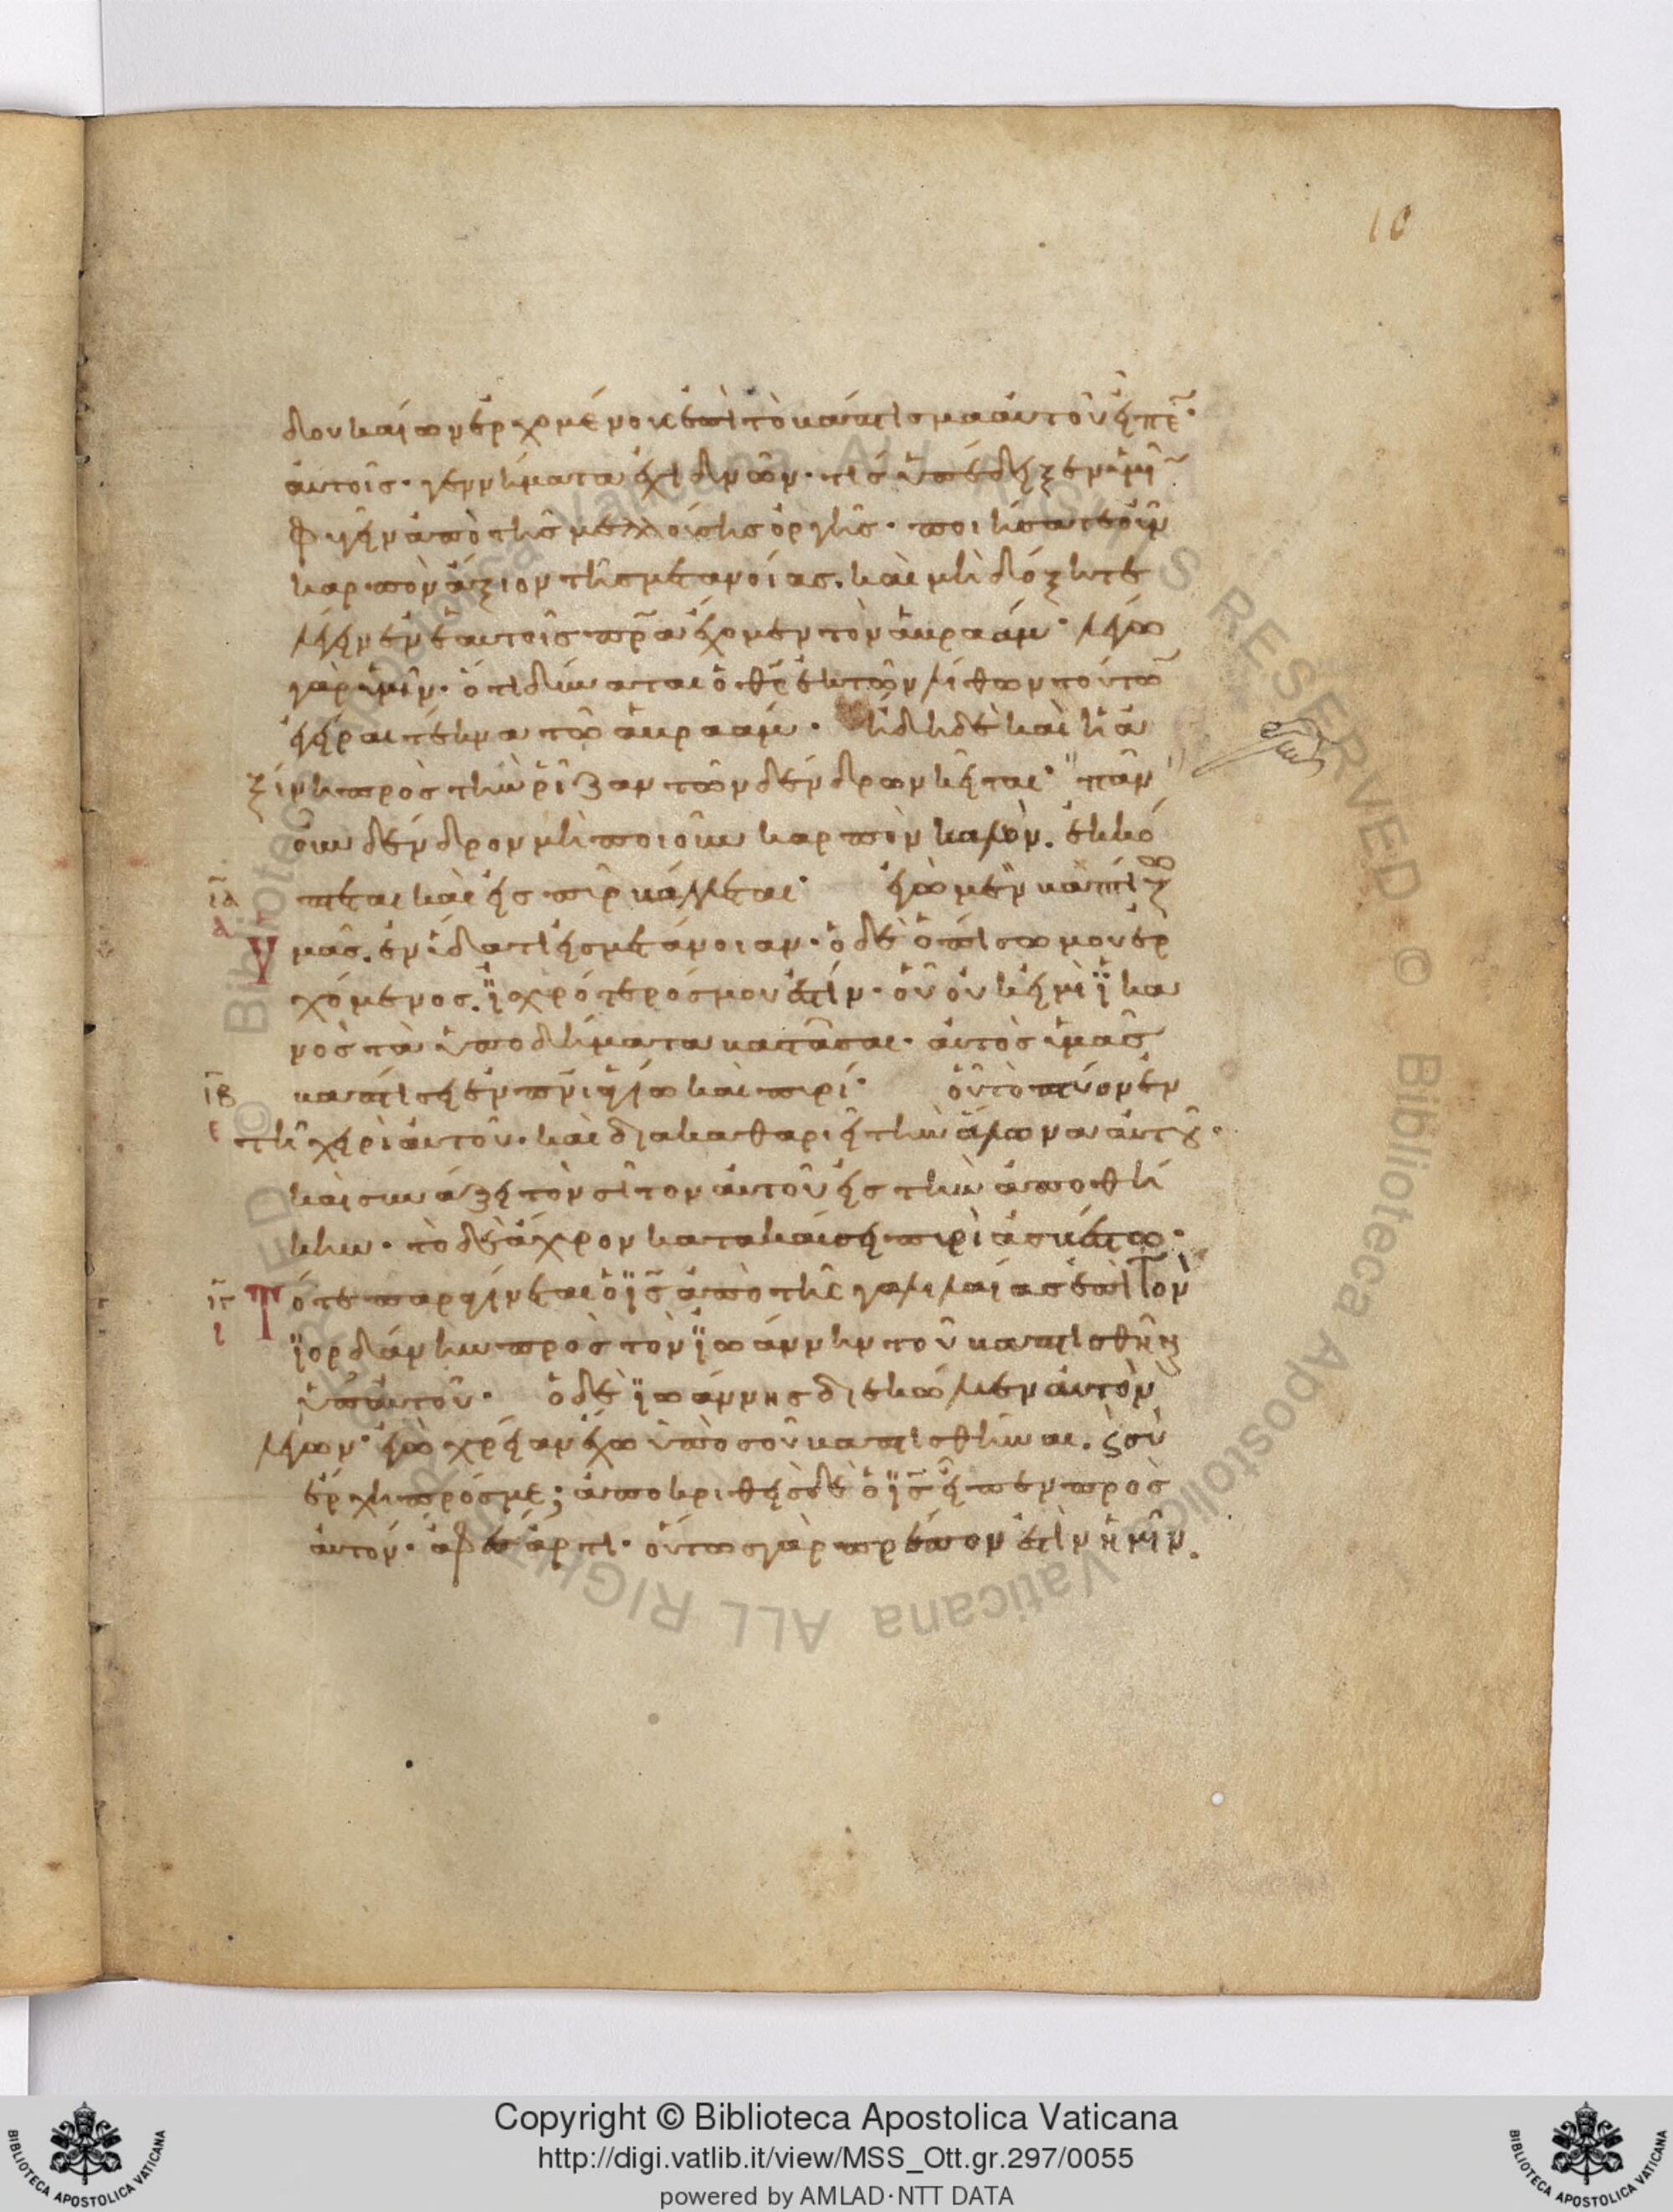 10
δουκαίων ἐρχομένουσ ἐπὶ τὸ βάπτισμα αὐτοῦ εἶπε·
αὐτοῖς· γεννήματα ἐχιδνῶν· τίς ὑπέδειξεν ὑμῖ
φυγεῖν ἀπὸ τῆς μελλούσης ὀργῆς· ποιήσατε οὖν
καρπὸν ἄξιον τῆς μετανοίας. καὶ μὴ δόξητε
λέγειν ἐν ἑαυτοῖς π̅ρ̅α ἔχομεν τὸν ἀβραάμ· λέγω
γὰρ ὑμῖν· ὅτι δύναται ὁ θ̅ς̅ ἐκ τῶν λίθων τούτω
ἐγεῖραι τέκνα τῶ ἀβραάμ· ἤδη δὲ καὶ ἡ ἀ
ξίνη πρὸς τὴν ῥίζαν τῶν δένδρων κεῖται· πᾶν
οὖν δένδρον μὴ ποιοῦν καρπὸν καλὸν. ἐκκό
ι̅α̅ πτεται καὶ εἰς πῦρ βάλλεται· ἐγὼ μὲν βαπτίζω
δ
Ὑμᾶς. ἐν ὕδατι εἰς μετάνοιαν· ὁ δὲ ὀπίσω μου ἐρ
χόμενος. ἰσχυρότερός μου ἐστὶν· οὗ οὐκ εἰμὶ ϊκα
νὸς τὰ ὑποδήματα βαστᾶσαι· αὐτὸς ὑμᾶς
ι̅β̅ βαπτίσει ἐν π̅ν̅ι ἁγίω καὶ πυρί· οὗ τὸ πτύον ἐν
ε τῆ χειρὶ αὐτοῦ· καὶ διακαθαριεῖ τὴν ἅλωνα αὐτοῦ·
καὶ συνάξει τὸν σῖτον αὐτοῦ εἰς τὴν ἀποθή
κην· τὸ δὲ ἄχυρον κατακαύσει πυρὶ ἀσβέστω·
ι̅γ̅ Τότε παραγίνεται ὁ ι̅ς̅ ἀπὸ τῆς γαλιλαίας ἐπὶ τὸν
ι
ϊορδάνην πρὸς τὸν ϊωάννην τοῦ βαπτισθῆναι
ὑπ αὐτοῦ· ὁ δὲ ϊωάννης διεκώλυεν αὐτὸν
λέγων· ἐγὼ χρείαν ἔχω ὑπὸ σοῦ βαπτισθῆναι. ϗ σὺ
ἔρχη πρός με; ἀποκριθεὶς δὲ ὁ ι̅ς̅ εἶπεν πρὸς
αὐτόν· ἄφες ἄρτι· οὕτως γὰρ πρέπον ἐστὶν ἡμῖν.
Copyright © Biblioteca Apostolica Vaticana
http://digi.vatlib.it/view/MSS_Ott.gr.297/0055
powered by AMLAD·NTT DATA